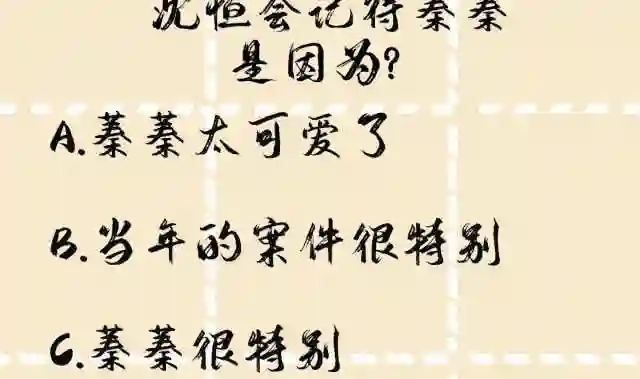 沈恒会记得蓁蓁
是因为?
A.蓁蓁太可爱了
B.当年的案件很特别
C.蓁蓁很特别